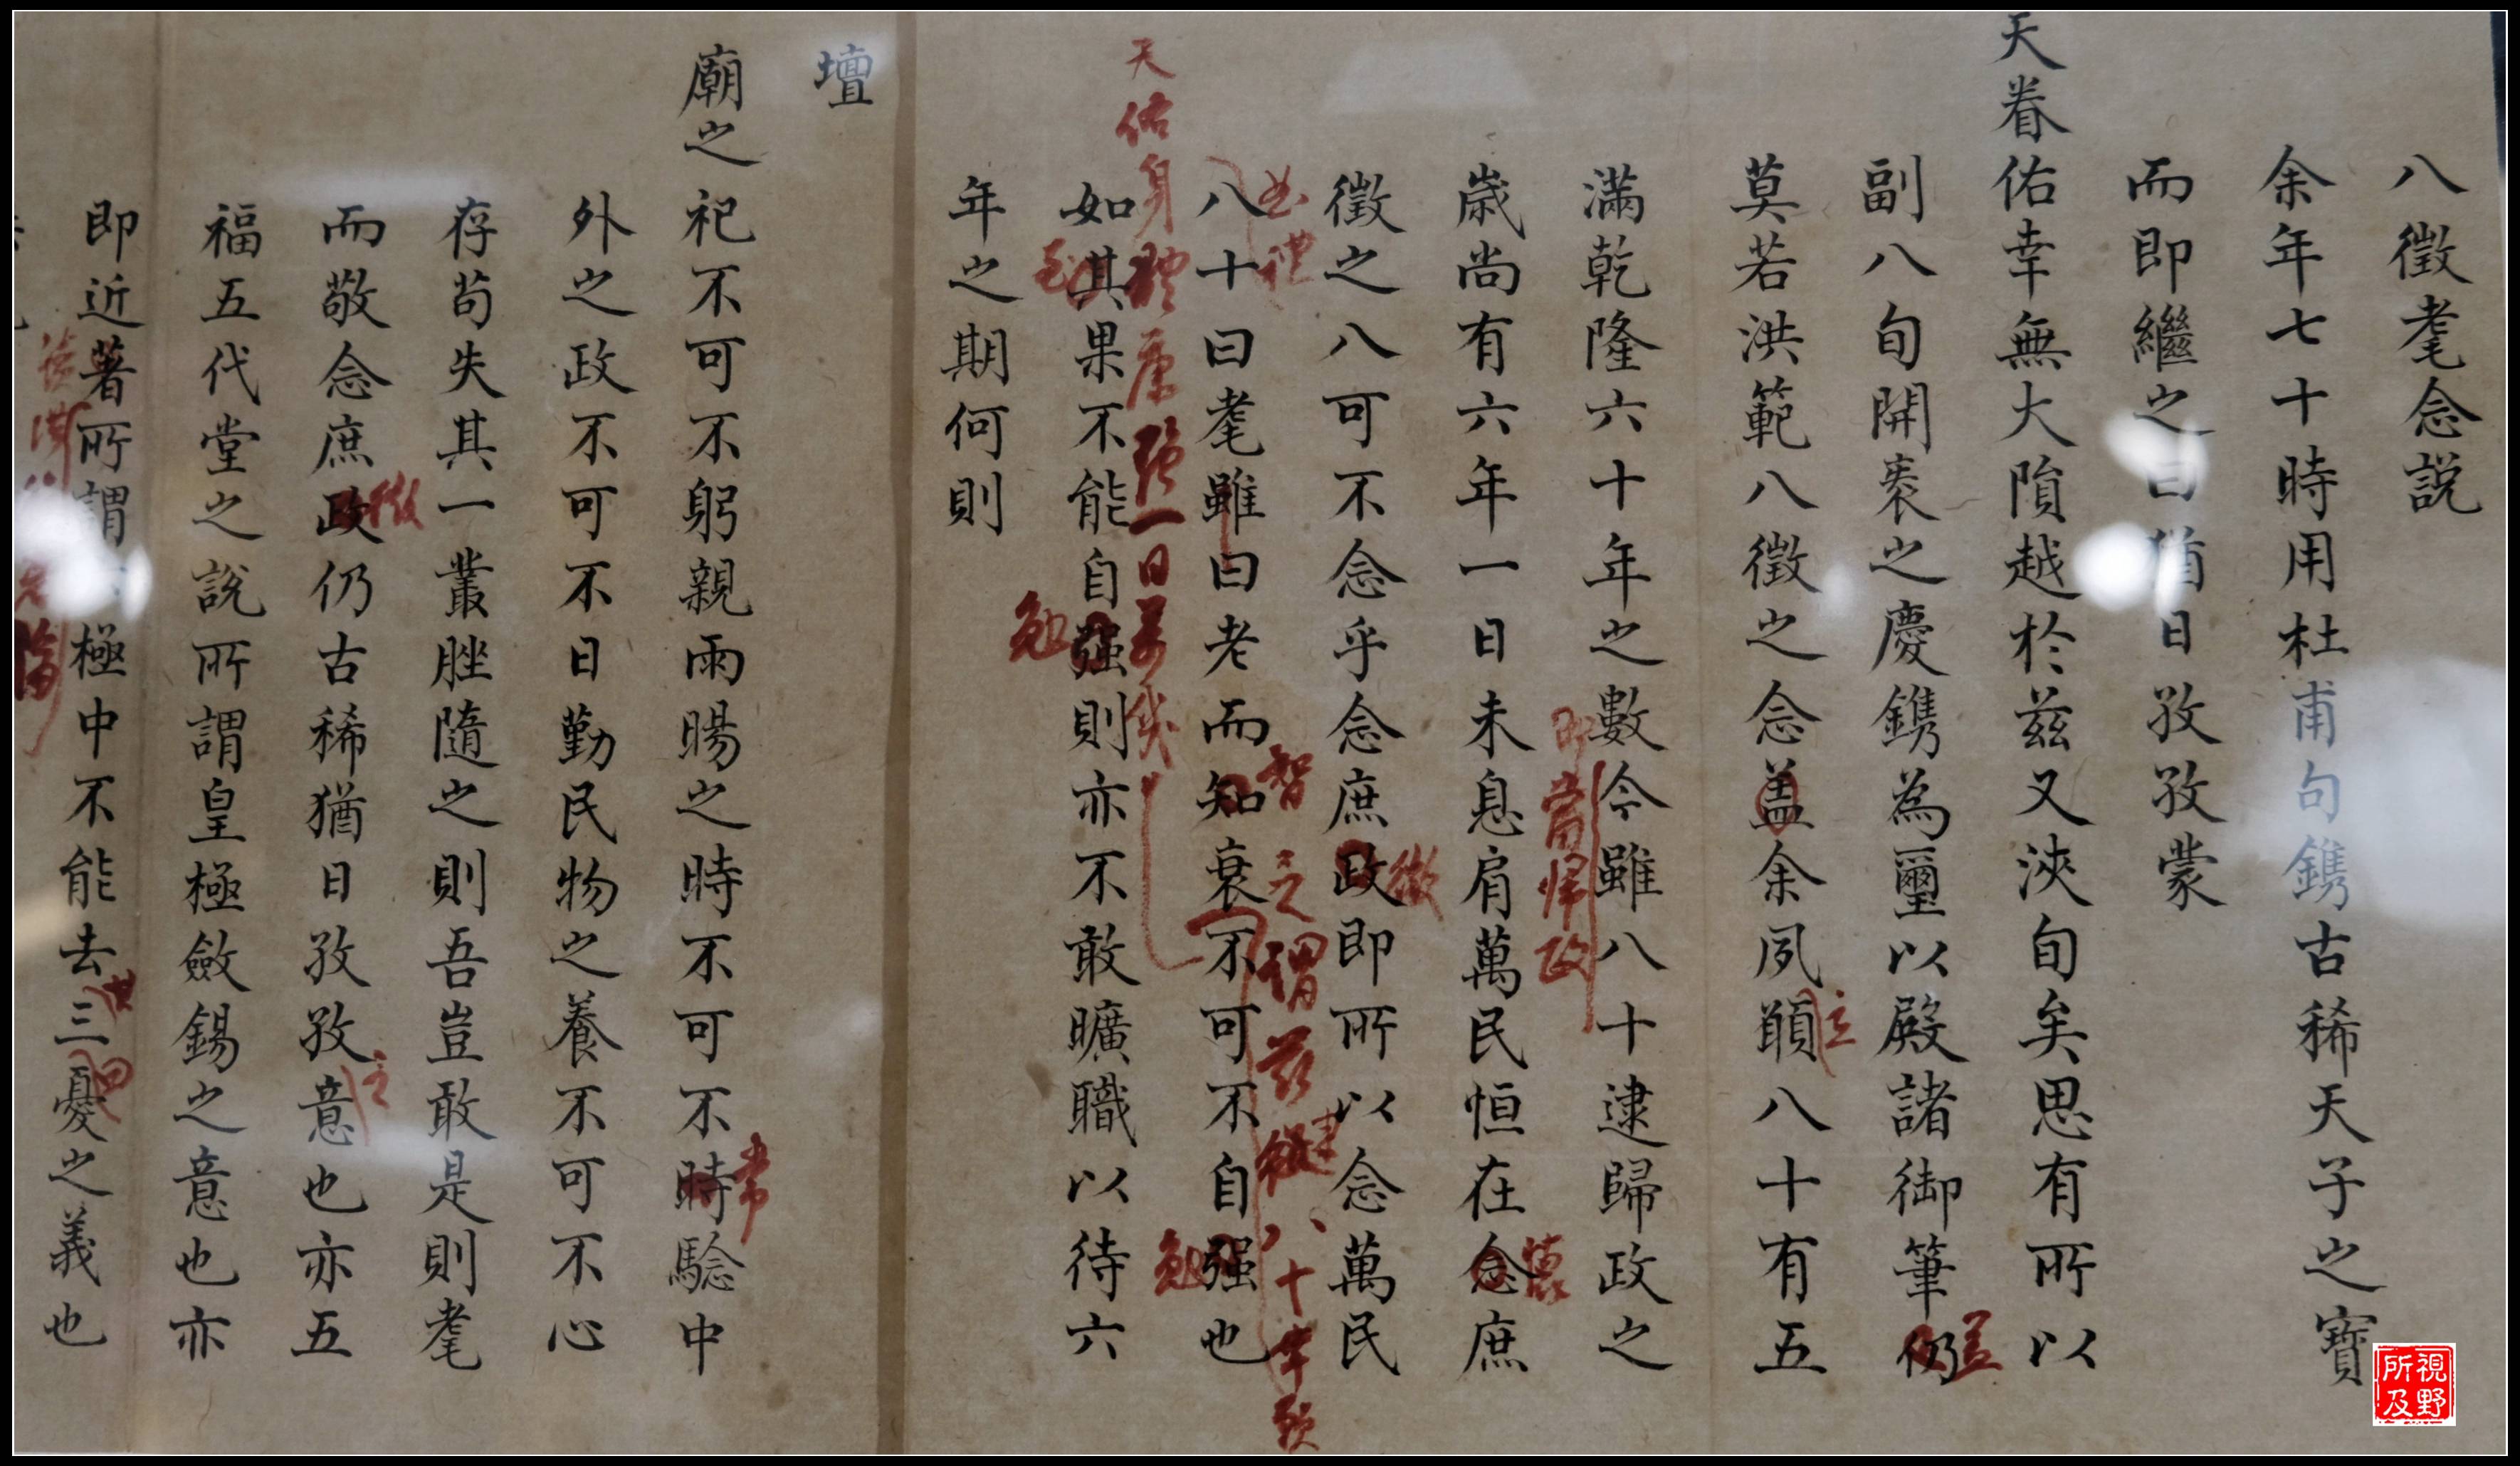 八徵耄念説
余年七十時用杜甫句鐫古稀天子之寶
而即繼之曰猶日孜孜蒙
天眷佑幸無大隕越於兹又浹旬矣思有所以
副八旬開袠之慶鐫為璽以殿諸御筆仍
蓋
莫若洪範八徵之念盖余夙願八十有五
立
滿乾隆六十年之數今雖八十逮歸政之
即當歸政
歲尚有六年一日未息肩萬民恒在念庶
懷
徵之八可不念乎念庶政即所以念萬民
徵
曲禮
八十曰耄雖曰老而知衰不可不自强也
智
之謂兹
八十
勉
天佑身體康强一日萬幾
如其果不能自强則亦不敢曠職以待六
勉
年之期何則
壇
廟之祀不可不躬親雨暘之時不可不時驗中
常
外之政不可不日勤民物之養不可不心
存苟失其一叢脞隨之則吾豈敢是則耄
而敬念庶政仍古稀猶日孜孜意也亦五
徵
之
福五代堂之說所謂皇極斂錫之意也亦
即近著所謂極中不能去三憂之義也
視野所及